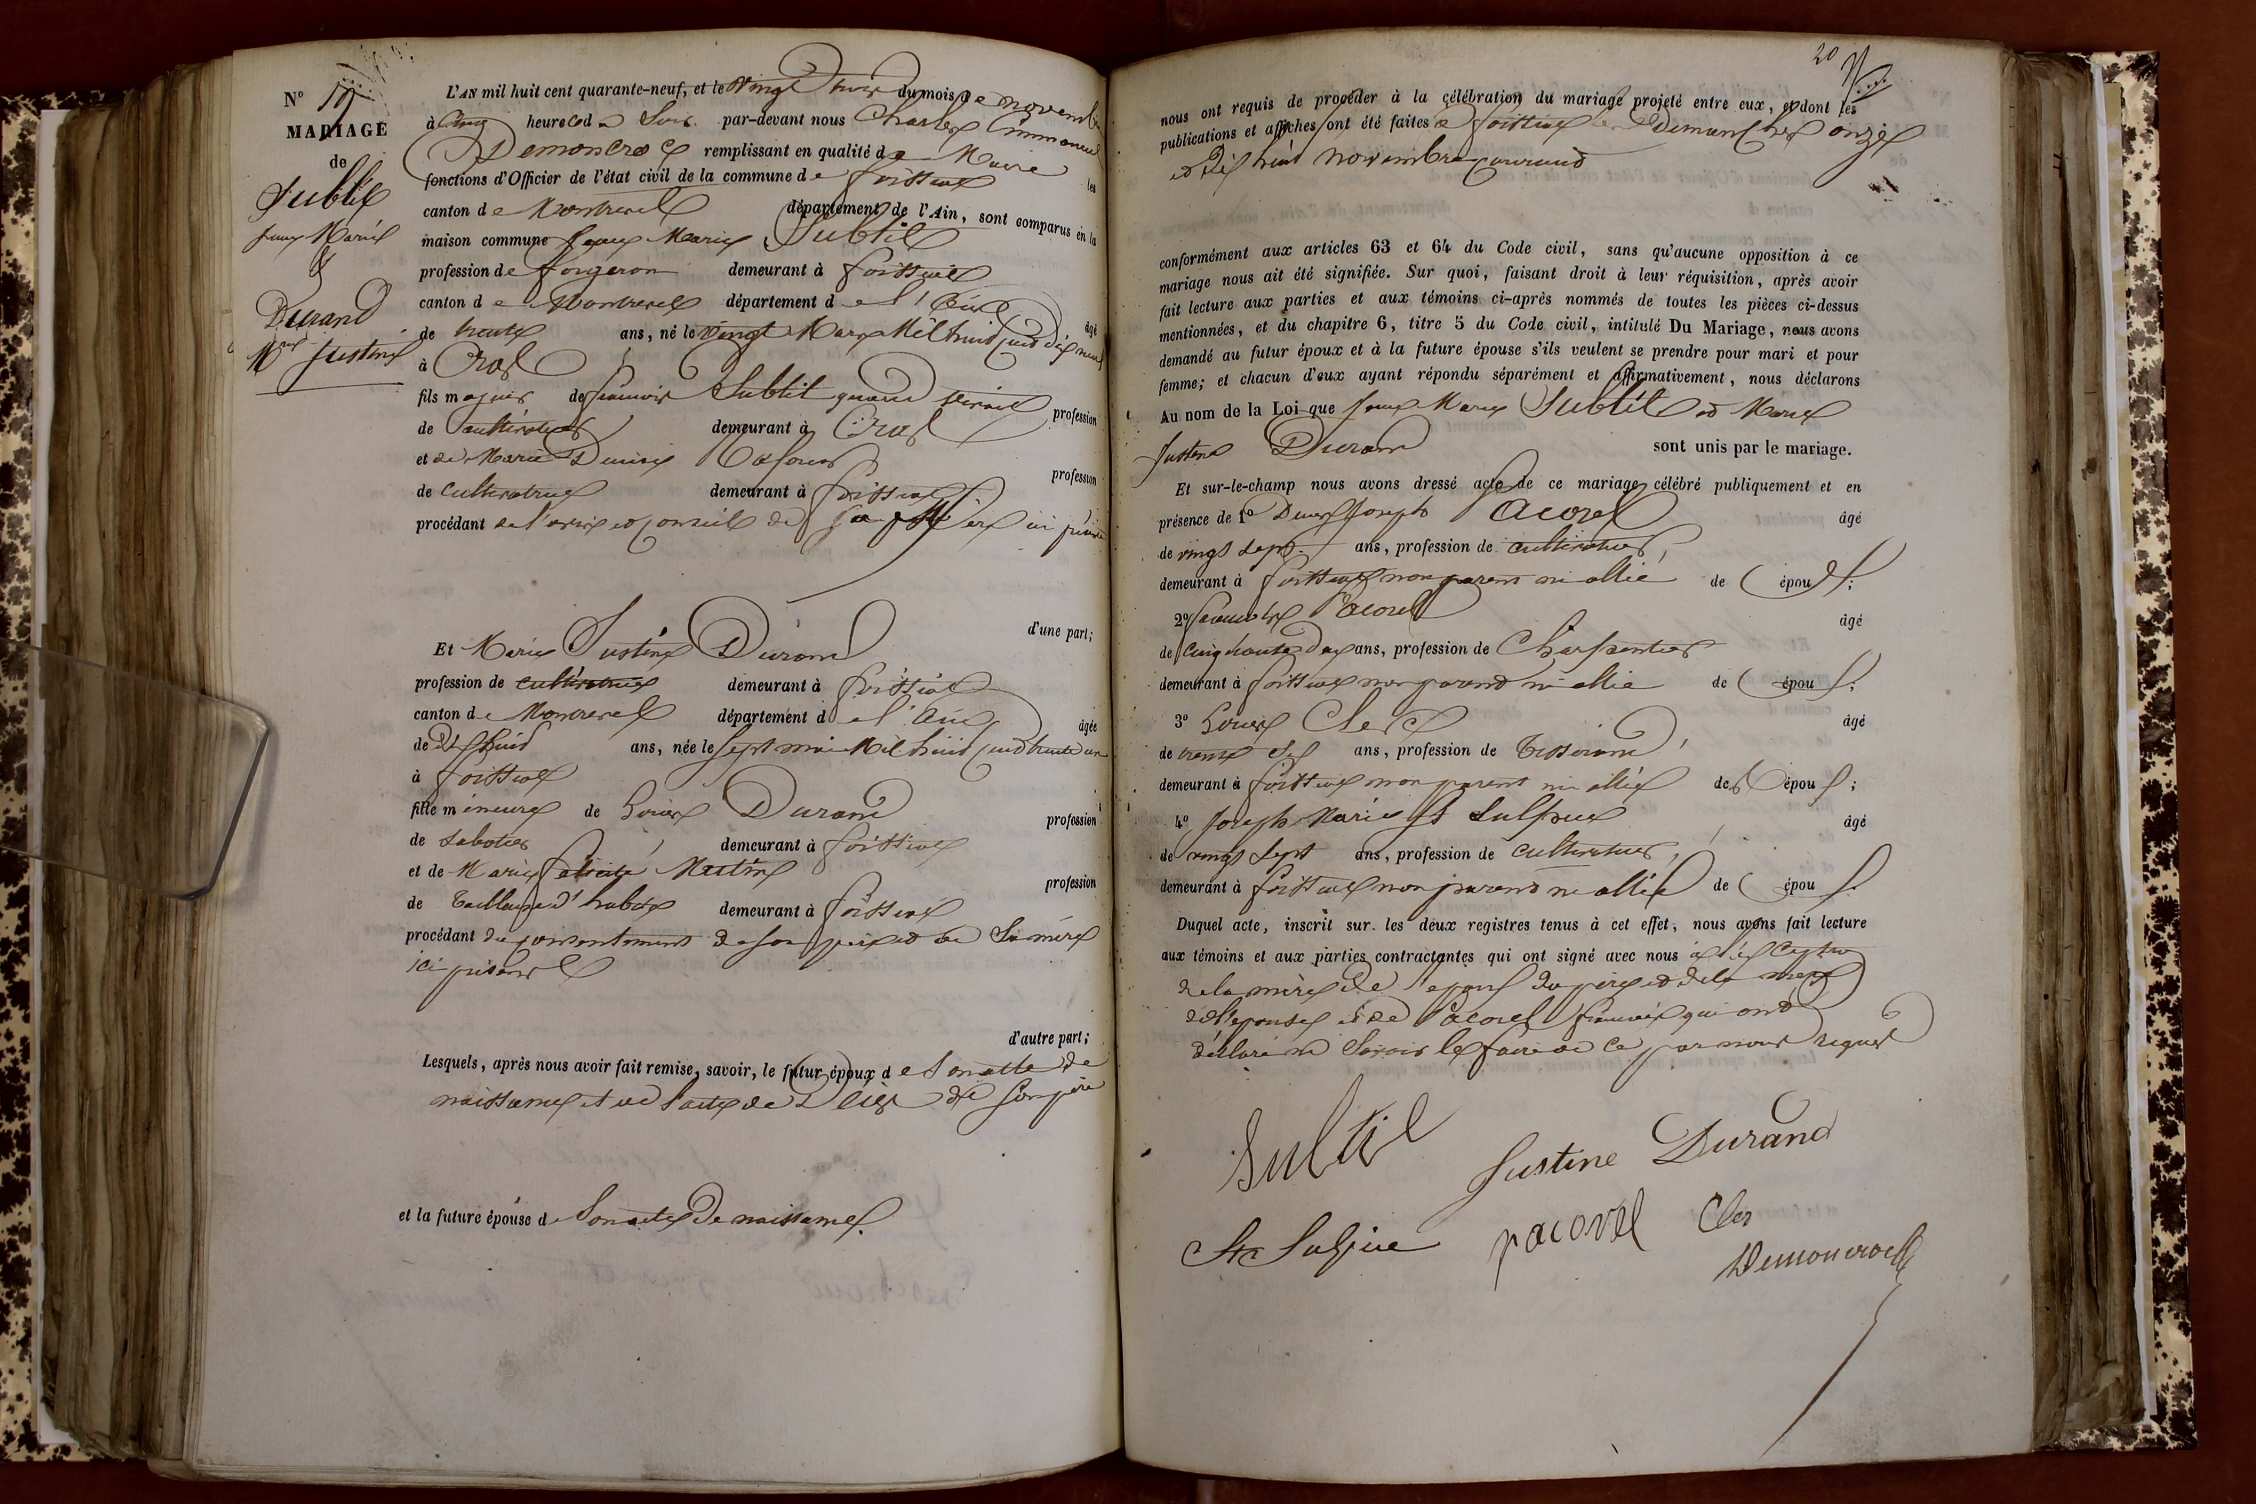 N° 19
MARIAGE
de
Subtil
Jean Marie
&
Durand
Mie Justine
L'AN mil huit cent quarante-neuf, et le vingt du mois de novembre
à cinq heures du Soir par-devant nous Charles Emmanuel
remplissant en qualité de Maire les
fonctions d'Officier de l'état civil de la commune de foissiat
canton de Montrevel département de l'Ain, sont comparus en la
maison commune Jean Marie Subtil
profession de forgeron demeurant à foissiat
canton de Montrevel département de l'Ain âgé
de trente ans, né le vingt Mars Mil huit cent dix neuf
à Cras
fils majeur de françois Subtil quand vivait profession
de cultivateur demeurant à Cras
et de Marie Denise profession
de cultivatrice demeurant à foissiat
procédant de l'avis et conseil de sa mère ici présente
d'une part;
Et Marie Justine Durand
profession de cultivatrice demeurant à foissiat
canton de Montrevel département de l'Ain âgée
de dix huit ans, née le sept mai Mil huit cent trente un
à foissiat
fille mineure de Louis Durand profession
de sabotier demeurant à foissiat
et de Marie félicité Martin profession
de Tailleuse d'habits demeurant à foissiat
procédant du consentement de son père et de Sa mère
ici présents
d'autre part;
Lesquels, après nous avoir fait remise, savoir, le futur époux de Son acte de
naissance et de l'acte de Décès de Son père
et la future épouse de Son acte De naissance.
20
nous ont requis de procéder à la célébration du mariage projeté entre eux, et dont les
publications et affiches ont été faites à foissiat les Dimanches onze
et Dix huit novembre courant
conformément aux articles 63 et 64 du Code civil, sans qu'aucune opposition à ce
mariage nous ait été signifiée. Sur quoi, faisant droit à leur réquisition, après avoir
fait lecture aux parties et aux témoins ci-après nommés de toutes les pièces ci-dessus
mentionnées, et du chapitre 6, titre 5 du Code civil, intitulé Du Mariage, nous avons
demandé au futur époux et à la future épouse s'ils veulent se prendre pour mari et pour
femme; et chacun d'eux ayant répondu séparément et affirmativement, nous déclarons
Au nom de la Loi que Jean Marie Subtil et Marie
Justine Durand sont unis par le mariage.
Et sur-le-champ nous avons dressé acte de ce mariage célébré publiquement et en
présence de 1° Denis Joseph Pacorel âgé
de vingt sept ans, profession de cultivateur,
demeurant à foissiat non parent ni allié de époux;
2° françois Pacorel âgé
de Cinquante Deux ans, profession de Charpentier
demeurant à foissiat non parent ni allié de époux;
3° Louis Clerc âgé
de trente Six ans, profession de Tisserand,
demeurant à foissiat non parent ni allié des époux;
4° Joseph Marie St Sulpice âgé
de vingt Sept ans, profession de cultivateur,
demeurant à foissiat non parent ni allié de époux.
Duquel acte, inscrit sur les deux registres tenus à cet effet, nous avons fait lecture
aux témoins et aux parties contractantes qui ont signé avec nous à l'exception
de la mère de l'époux du père et de la mère
de l'épouse et de Pacorel françois qui ont
déclaré ne Savoir le faire de ce par nous requis
Subtil
Justine Durand
St Sulpice pacorel Clerc